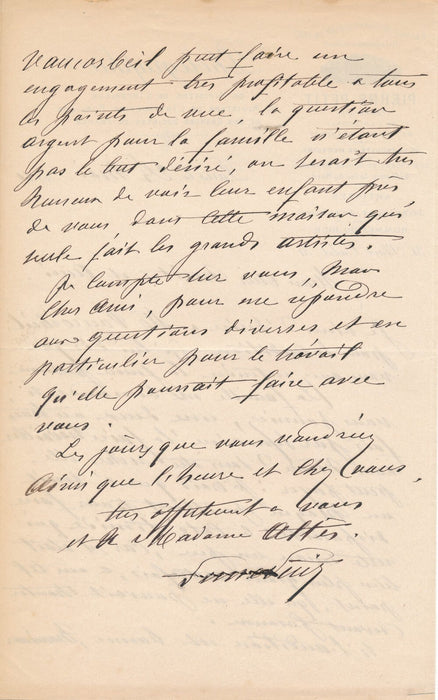 Vaucorbeil peut faire un
engagement très profitable a tous
les points de vue, la question
argent pour la famille n'étant
pas le but désiré, on serait très
heureux de voir leur enfant près
de vous dans cette maison qui
seule fait les grands artistes.
Je compte sur vous, Mon
Cher ami, pour me répondre
aux questions diverses et en
particulier pour le travail
qu'elle pourrait faire avec
vous.
Les jours que vous voudriez
Ainsi que l'heure et Chez vous.
très affectueux a vous
et A Madame Altès.